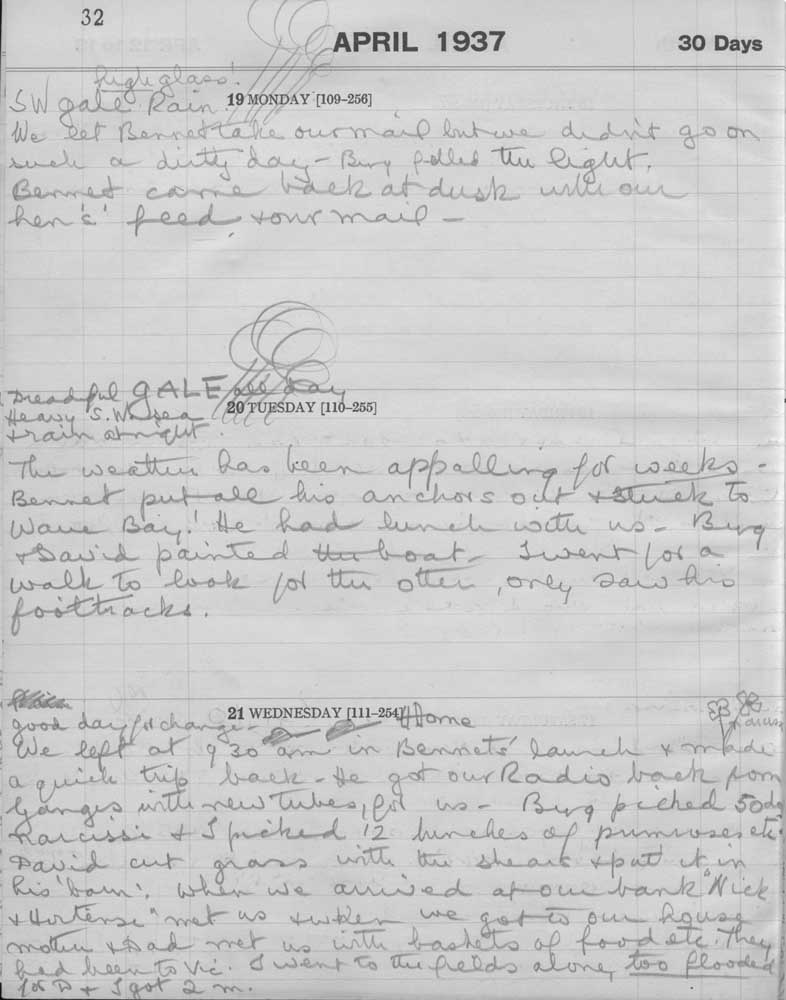 32
APRIL 1937
30 Days
high glass!
SW gale Rain. 19 MONDAY [109-256]
We let Bennet take our mail but we didn't go on
such a dirty day - Bevy the light.
Bennet came back at dusk with our
hen's' feed, & our mail -
Dreadful GALE all day
Heavy S.W. sea 20 TUESDAY [110-255]
& rain at night.
The weather has been appalling for weeks -
Bennet put all his anchors out & stuck to
Bay! He had lunch with us -
& David painted the boat - I went for a
walk to look for the otter, only saw his
foottracks.
21 WEDNESDAY [111-254] Home
good day for change -
We left at 9 30 am in Bennets' launch & made
a quick trip back - He got our Radio back from
Ganges with new tubes, for us - picked 50 dz
Narcissi & I picked 12 bunches of primroses etc.
David cut grass with the shears & put it in
his 'barn'. When we arrived at our bank "Nick
& Hortense" met us & when we got to our house
mother & Dad met us with baskets of food etc. They
had been to Vic. I went to the fields alone, too flooded
for D & I got 2 m.